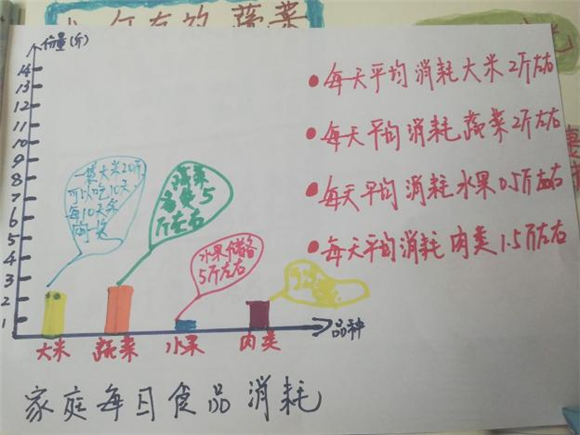 年有的蔬菜
份量(斤)
14
13
12
11
10
9
8
7
6
5
4
3
2
1
一袋大米20斤
可以吃10天,
每10天买
一袋
蔬菜
消费5
斤左右
水果储备
5斤左右
大米
蔬菜
水果
肉类
品种
●每天平均消耗大米2斤左右
●每天平均消耗蔬菜2斤左右
●每天平均消耗水果0.5斤左右
●每天平均消耗肉类1.5斤左右
家庭每日食品消耗